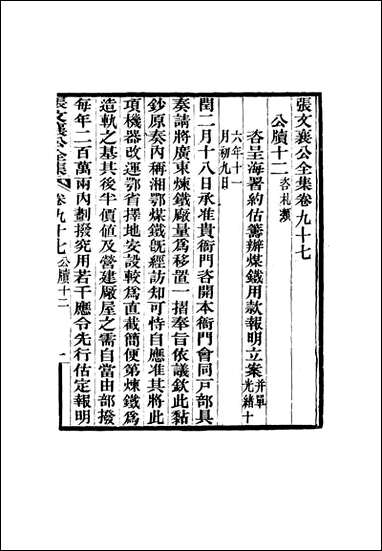 張文襄公全集卷九十七
公牘十二咨札類
咨呈海署約估籌辦煤鐵用款報明立案并單光緒十
六年十一
月初九日
閏二月十八日承准貴衙門咨開本衙門會同戸部具
奏請將廣東煉鐵廠量爲移置一摺奉旨依議欽此黏
鈔原奏內稱湘鄂煤鐵旣經訪知可恃自應准其將此
項機器改運鄂省擇地安設較爲直截簡便第煉鐵爲
造軌之基其後半價值及營建廠屋之需自當由部撥
每年二百萬兩內劃撥究用若干應令先行估定報明
張文襄公全集 卷九十七 公牘十二 一